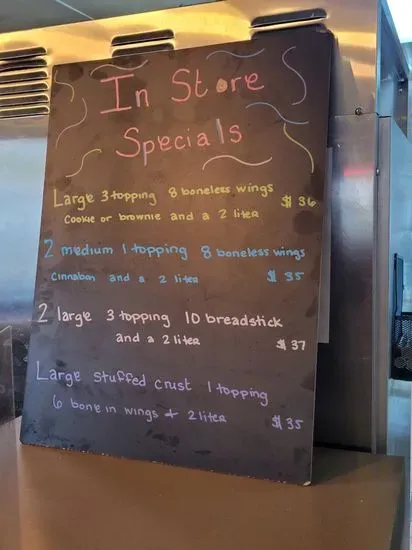 In Store
Specials
Large 3 topping 8 boneless wings
Cookie or brownie and a 2 liter $36
2 medium 1 topping 8 boneless wings
Cinnabon and a 2 liter $35
2 large 3 topping 10 breadstick
and a 2 liter $37
Large stuffed crust 1 topping
6 bone in wings + 2 liter $35